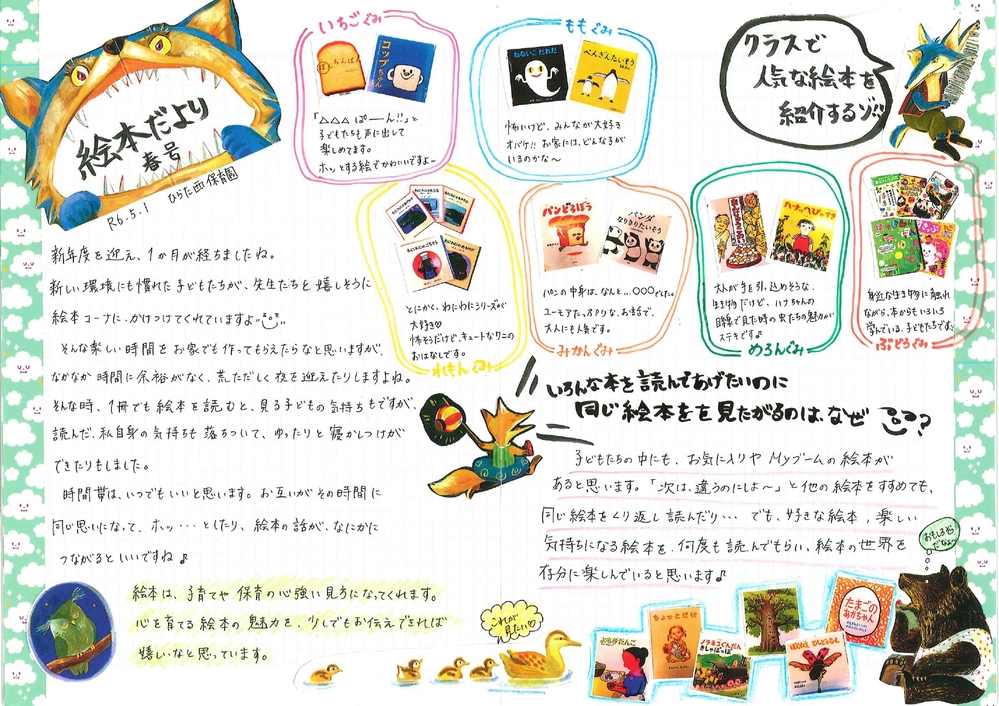 絵本だより
春号
R6.5.1 ひらた西保育園
いちごぐみ
しょくぱん
コップちゃん
「△△△ ぱーん!!」と
子どもたちも声に出して
楽しめてます。
ホッとする絵でかわいいですよー
ももぐみ
ねないこだれだ
ぺんぎんたいそう
怖いけど、みんなが大好き
オバケ!! お家には、どんな子が
いるのかな〜
クラスで
人気な絵本を
紹介するゾ!!
新年度を迎え、1か月が経ちましたね。
新しい環境にも慣れた子どもたちが、先生たちと嬉しそうに
絵本コーナに、かけつけてくれていますよ
そんな楽しい時間をお家でも作ってもらえたらなと思いますが、
なかなか時間に余裕がなく、荒ただしく夜を迎えたりしますよね。
そんな時、1冊でも絵本を読むと、見る子どもの気持ちもですが、
読んだ、私自身の気持ちも落ちついて、ゆったりと寝かしつけが
できたりもしました。
時間帯は、いつでもいいと思います。お互いがその時間に
同じ思いになって、ホッ…としたり、絵本の話が、なにかに
つながるといいですね♪
絵本は、子育てや保育の心強い見方になってくれます。
心を育てる絵本の魅力を、少しでもお伝えできれば
嬉しいなと思っています。
とにかく、わにわにシリーズが
大好き♡
怖そうだけど、キュートなワニの
おはなしです。
れもんぐみ
パンどろぼう
パンダ
なりきりたいそう
パンの中身は、なんと…〇〇〇でした。
ユーモアたっぷりな、お話で、
大人にも人気です。
みかんぐみ
ハナちゃんの
大人が手を引っ込めそうな、
生き物だけど、ハナちゃんの
目線で見た時の虫たちの魅力が
ステキです♪
めろんぐみ
身近な生き物に触れ
ながら、本からもいろいろ
学んでいる、子どもたちです。
ぶどうぐみ
いろんな本を読んであげたいのに
同じ絵本をを見たがるのは、なぜ?
子どもたちの中にも、お気に入りや Myブームの絵本が
あると思います。「次は、違うのにしよ〜」と他の絵本をすすめても、
同じ絵本をくり返し読んだり… でも、好きな絵本、楽しい
気持ちになる絵本を、何度も読んでもらい、絵本の世界を
存分に楽しんでいると思います♪
おもしろそう
だなぁ〜
これが
見たい♡
よもぎだんご
ちょっとだけ
ノラネコぐんだん
きしゃぽっぽ
たまごの
あかちゃん